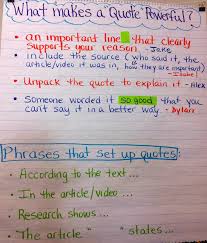 What makes a Quote Powerful?
• an important line that clearly
supports your reason. - Jake
• include the source (who said it, the
article/video it was in, & how they are important)
- Isabe
• Unpack the quote to explain it - Alex
• Someone worded it so good that you
can't say it in a better way. - Dylan
Phrases that set up quotes:
• According to the text ...
• In the article/video ...
• Research shows ...
• The article " " states ...